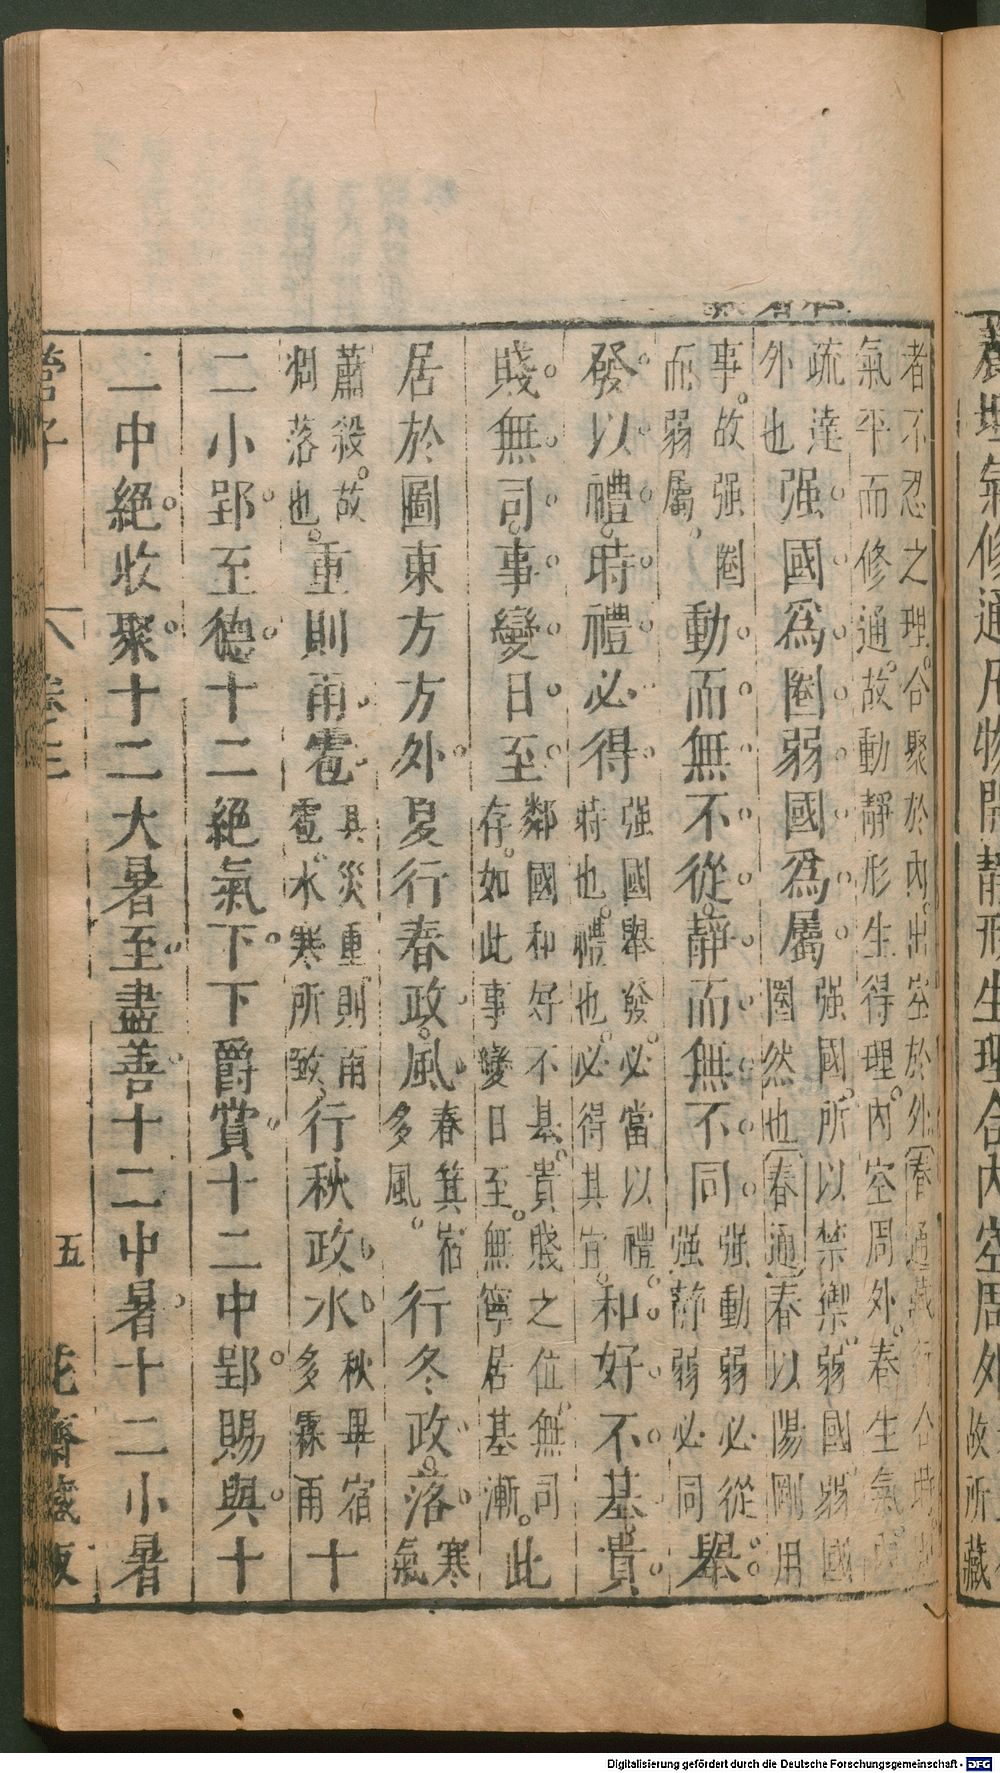 理氣修通凡物開靜形生理合內空周外
故所藏
者不忍之理。合聚於內。出空於外〔春
氣平而修通。故動靜形生得理。內空周外。春生氣。
疏達
外也
强國爲圈弱國爲屬
强國。所以禁禦。弱國弱國
圈然也〔春通〕春以陽剛用
事。故强圈
而弱屬。
動而無不從。靜而無不同
强動弱必從。
强靜弱必同
舉
發以禮。時禮必得
强國舉發。必當以禮。
時也。禮也。必得其宜。
和好不基。貴
賤無司。事變日至
鄰國和好不基。貴賤之位。無司
存。如此事變日至。無寧居基漸。
此
居於圖東方方外。夏行春政。風
春箕宿
多風。
行冬政。落
寒
氣
蕭殺。故
凋落也。
重則雨雹
其災重則雨
雹。水寒所致。
行秋政水
秋畢宿
多霖雨
十
二小郢。至德。十二絕氣下。下爵賞。十二中郢。賜與。十
二中絕。收聚。十二大暑至。盡善。十二中暑。十二小暑
管子
卷三
五
花齋藏板
Digitalisierung gefördert durch die Deutsche Forschungsgemeinschaft - DFG